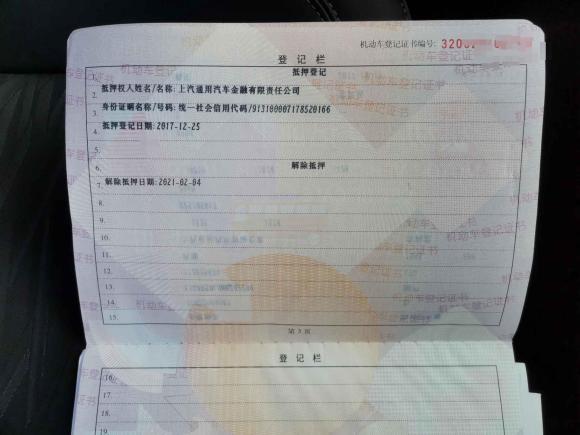 机动车登记证书编号: 3200
登记栏
1. 抵押登记
2. 抵押权人姓名/名称:上汽通用汽车金融有限责任公司
3. 身份证明名称/号码:统一社会信用代码/913100007178520166
4. 抵押登记日期:2017-12-25
5.
6. 解除抵押
7. 解除抵押日期:2021-02-04
8.
9.
10.
11.
12.
13.
14.
15.
第3页
登记栏
16.
17.
18.
19.